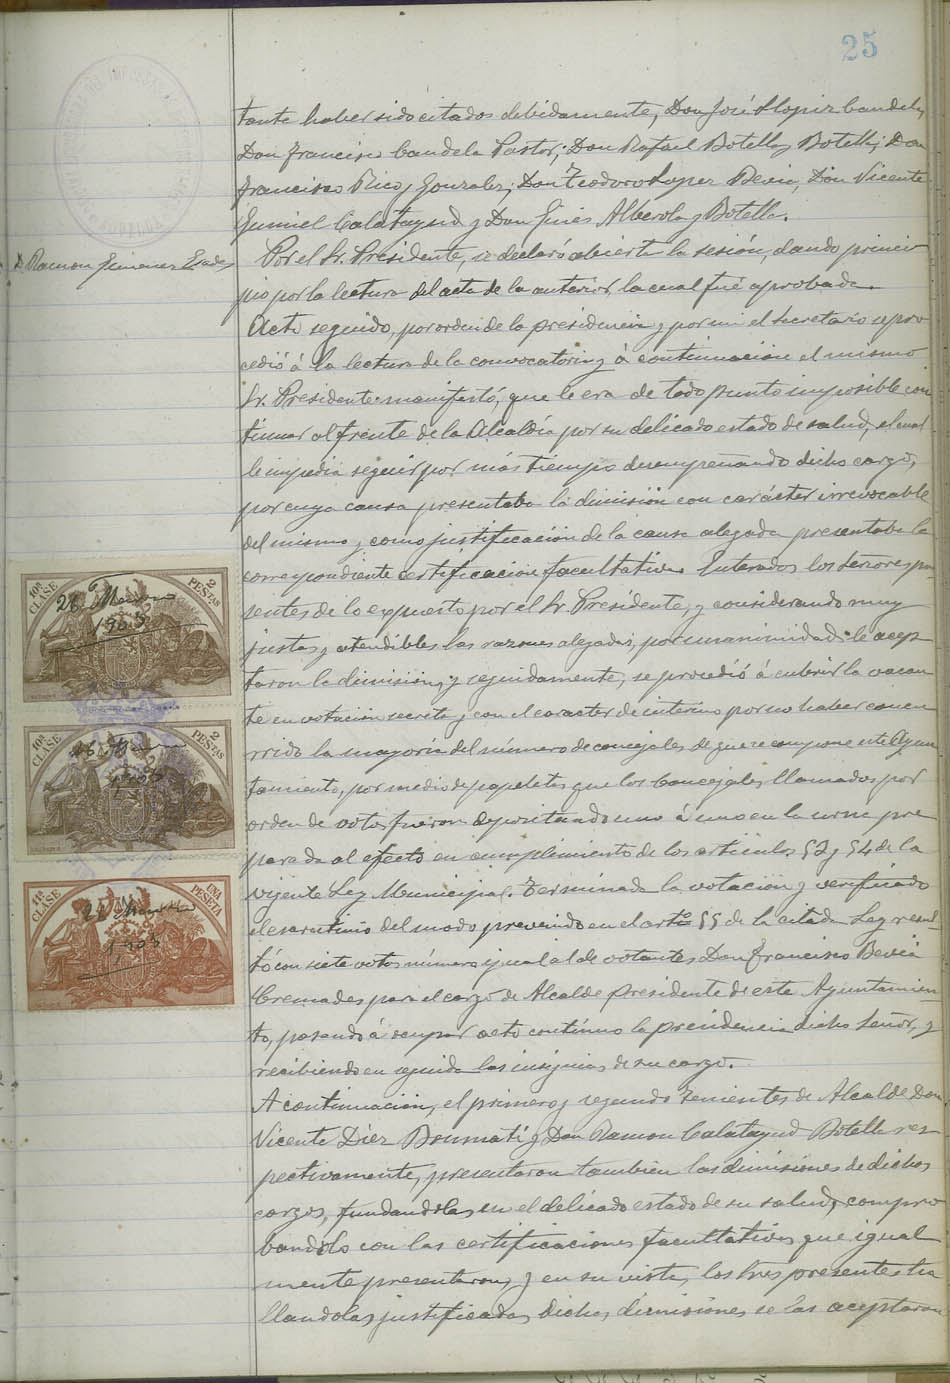 25
tante haber sido citados debidamente, Don José Llopiz Candela,
Don Francisco Candela Pastor, Don Rafael Botella y Botella, Don
Francisco Rico y Gonzalez, Don Teodoro Lopez Bevia, Don Vicente
Jumiel Calatayud y Don Ginés Alberola y Botella.
D. Ramon Gimenez
Por el Sr. Presidente, se declaró abierta la sesión, dando princi
pio por la lectura del acta de la anterior, la cual fué aprobada.
Acto seguido, por orden de la presidencia y por mi el Secretario se pro
cedió á la lectura de la convocatoria y á continuacion el mismo
Sr. Presidente manifestó, que le era de todo punto imposible con
tinuar al frente de la Alcaldía por su delicado estado de salud, el cual
le impedia seguir por más tiempo desempeñando dicho cargo,
por cuya causa presentaba la dimisión con carácter irrevocable
del mismo y como justificación de la causa alegada presentaba la
correspondiente certificacion facultativa. Enterados los señores pre
sentes de lo expuesto por el Sr. Presidente, y considerando muy
justas y atendibles las razones alegadas, por unanimidad le acep
taron la dimision, y seguidamente, se procedió á cubrir la vacan
te en votación secreta y con el caracter de interino por no haber concu
rrido la mayoría del número de concejales de que se compone este Ayun
tamiento, por medio de papeletas que los Concejales, llamados por
orden de votos fueron depositando uno á uno en la urna pre
parada al efecto en cumplimiento de los articulos 52 y 54 de la
vijente Ley Municipal. Terminada la votación y verificado
el escrutinio del modo prevenido en el artº 55 de la citada Ley resul
tó con siete votos número igual al de votantes Don Francisco Beviá
Cremades para el cargo de Alcalde Presidente de este Ayuntamien
to, pasando á ocupar acto contínuo la presidencia dicho Señor, y
recibiendo en seguida las insignias de su cargo.
A continuación, el primero y segundo Tenientes de Alcalde Don
Vicente Diez Brumati y Don Ramon Calatayud Botella res
pectivamente, presentaron tambien las dimisiones de dichos
cargos, fundandolas en el delicado estado de su salud, compro
bandolo con las certificaciones facultativas que igual
mente presentaron, y en su vista, los tres presentes ha
llandolas justificadas dichas dimisiones se las aceptaron
10ª CLASE
2 PESETAS
26 Marzo
1905
10ª CLASE
2 PESETAS
26 Marzo
1905
11ª CLASE
UNA PESETA
26 Marzo
1905